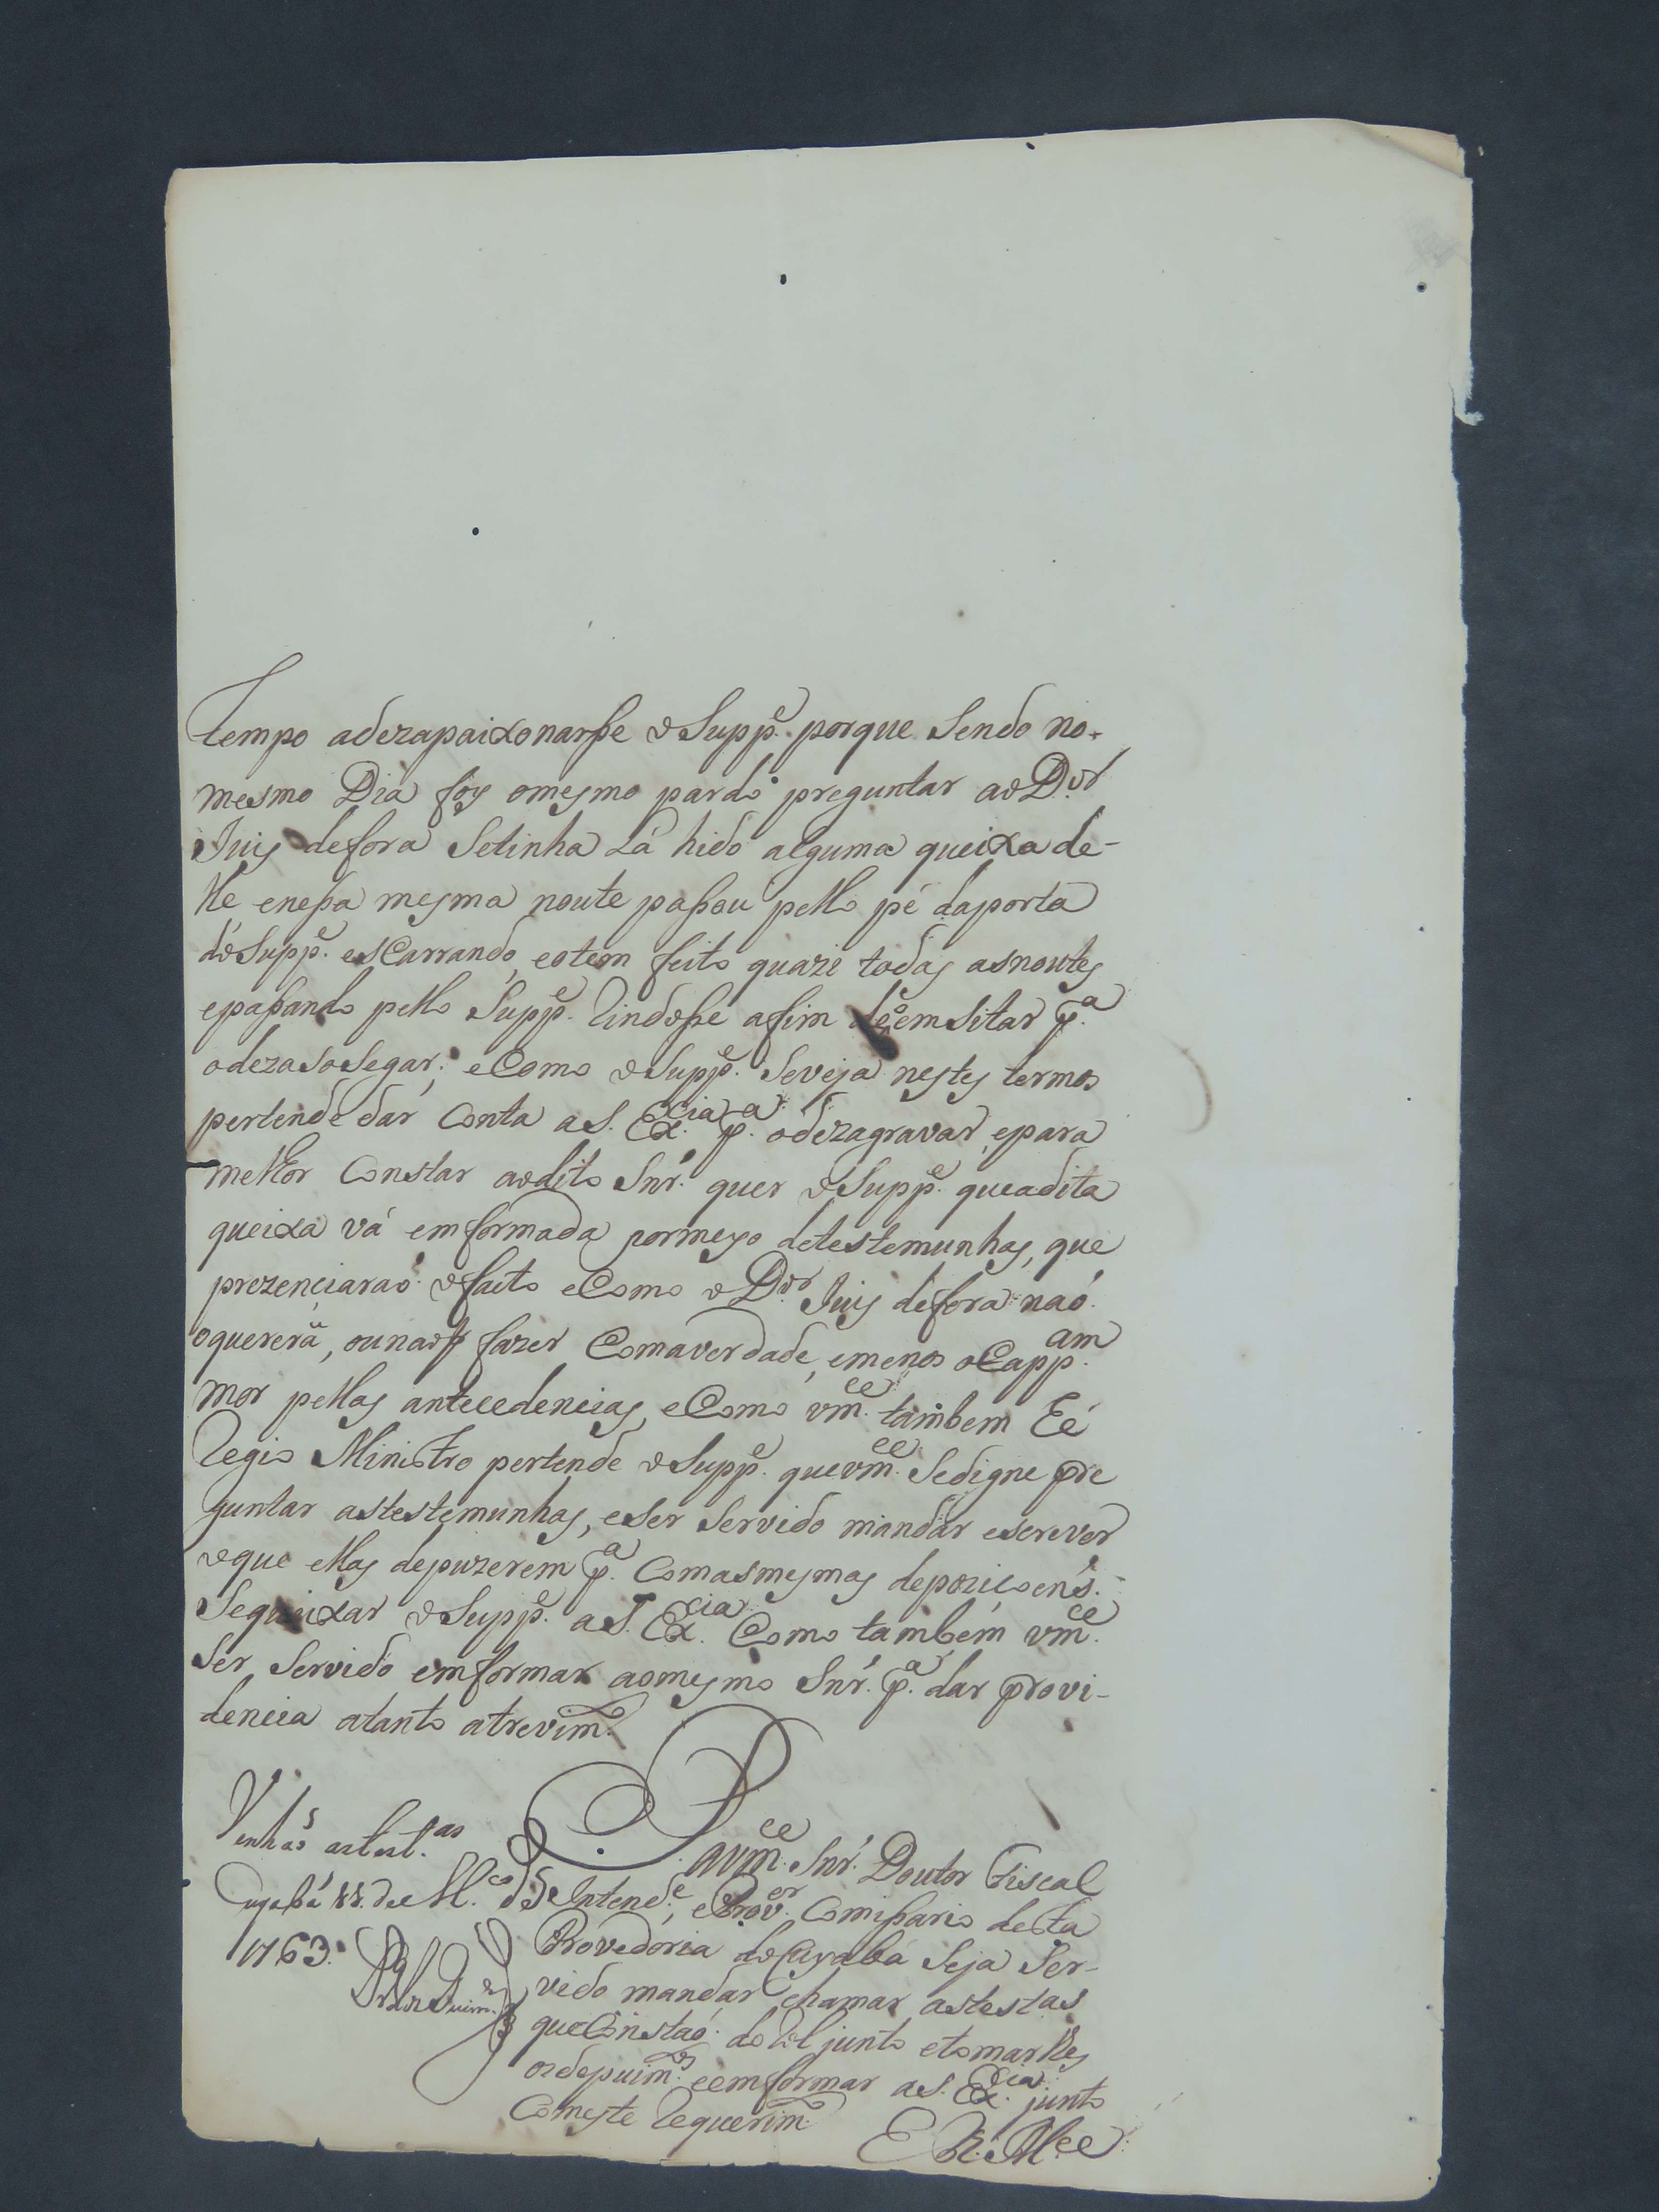 tempo adezapaixonarse o Supp.e porque sendo no-
mesmo Dia foy omesmo pardo preguntar ao D.or
Juis defora setinha Lá hido alguma queixa de-
lle, enesa mesma noute pasou pello pé daporta
do Supp.e esCarrando, eotem feito quazi todas asnoutes
epasando pello Supp.e Rindose afim de emSitar p.a
odezasosegar; eComo o Supp.e Seveja nestes termos
pertende dar Conta a S. Ex.cia p.a odezagravar, epara
melhor Constar aodito Snr. quer o Supp.e queadita
queixa vá emformada pormeyo detestemunhas, que
prezenciaraó o faito eComo o D.or Juis defora naó
oquererá, ounaó fazer Comaverdade, emenos oCapp.am
mor pellas antecedencias, eComo vm.ce também Hé
Regio Ministro pertende o Supp.e quevm.ce Sedigne pre
guntar astestemunhas, eser servido mandar escrever
oque ellas depuzerem p.a Comasmesmas depoziçoens
Sequeixar o Supp.e a S. Ex.cia Como também vm.ce
ser servido emformar aomesmo Snr. p.a dar provi-
dencia atanto atrevim.to
P.
Venhaó astest.as
Cuyabá 11. de M.ço de
1763.
avm.ce Snr. Doutor Fiscal
Intend.e, eProv.or Comisario desta
Provedoria doCuyabá Seja Ser-
vido mandar chamar astestas
queConstaó do Rol junto etomarlhes
osdepuim.tos eemformar a S. Ex.cia junto
Comeste Requerim.to
E R. M.ce